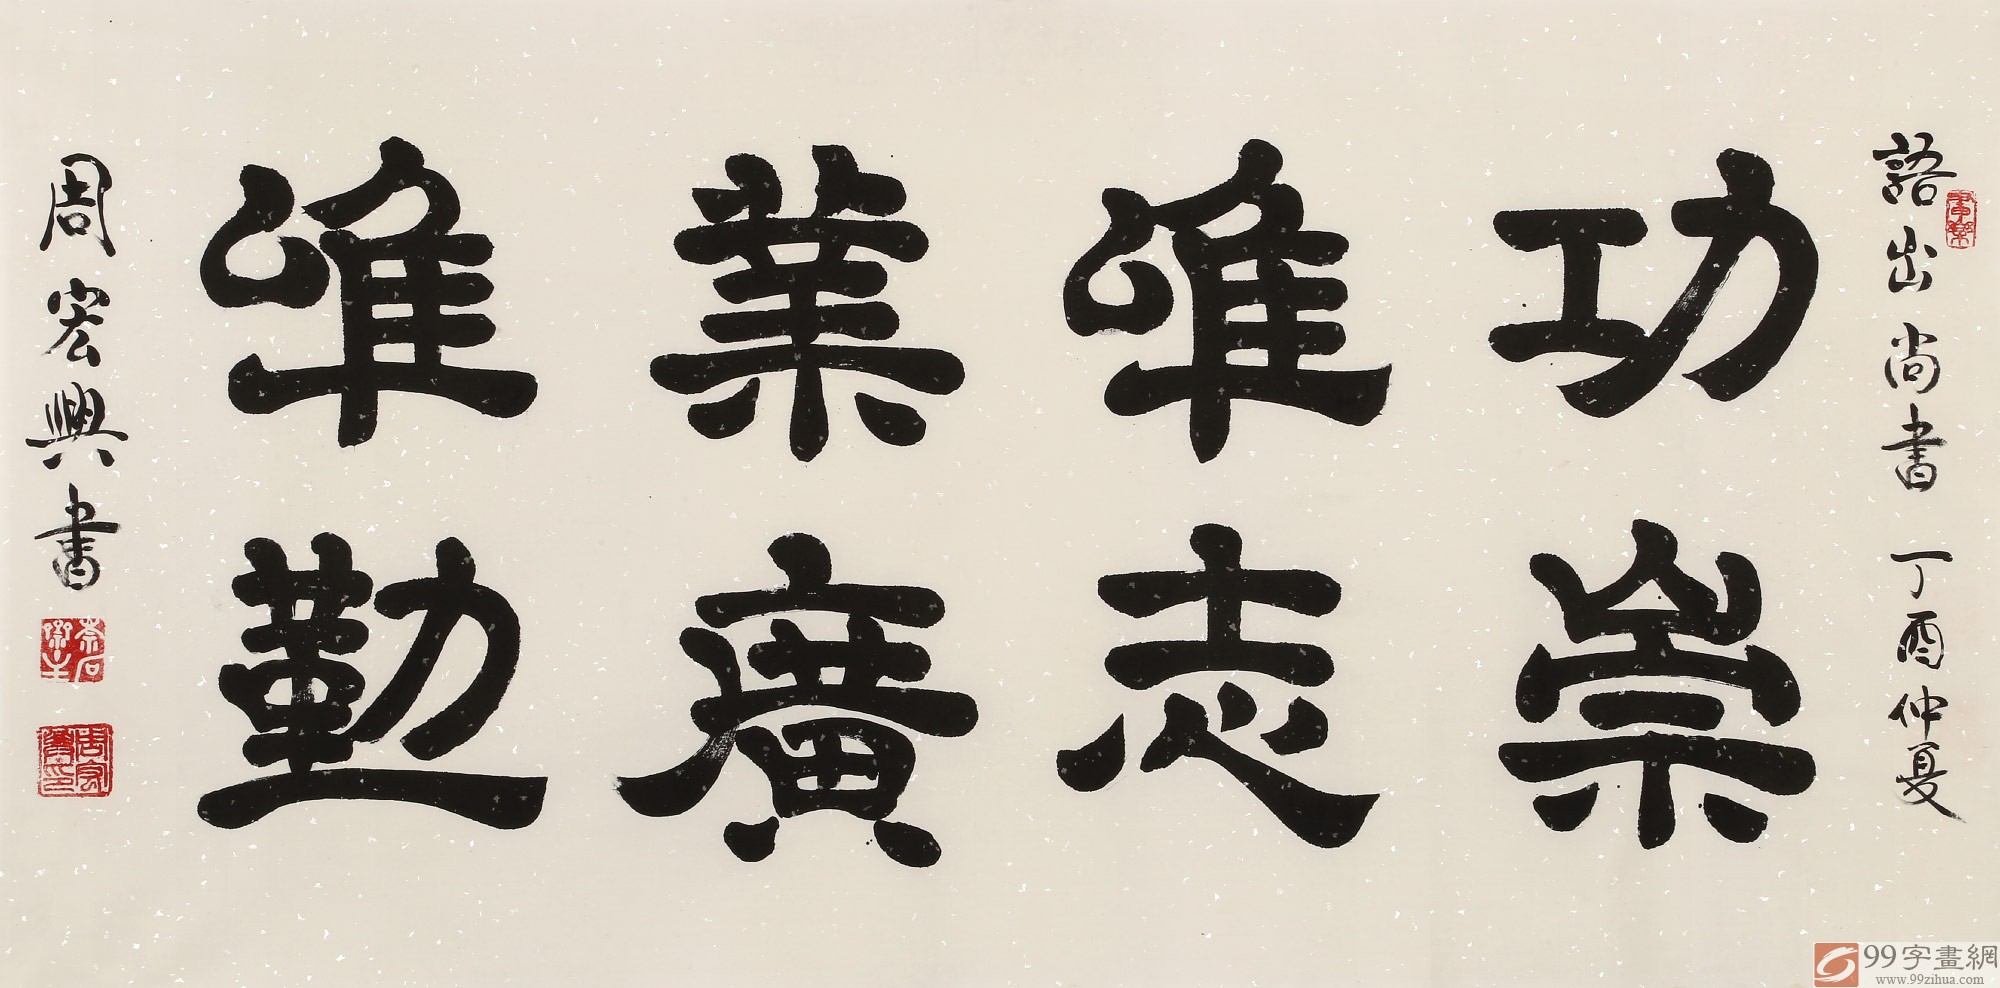 語出尚書 丁酉仲夏
功崇
唯志
業廣
唯勤
周宏興書
周宏興印
99字畫網
www.99zihua.com